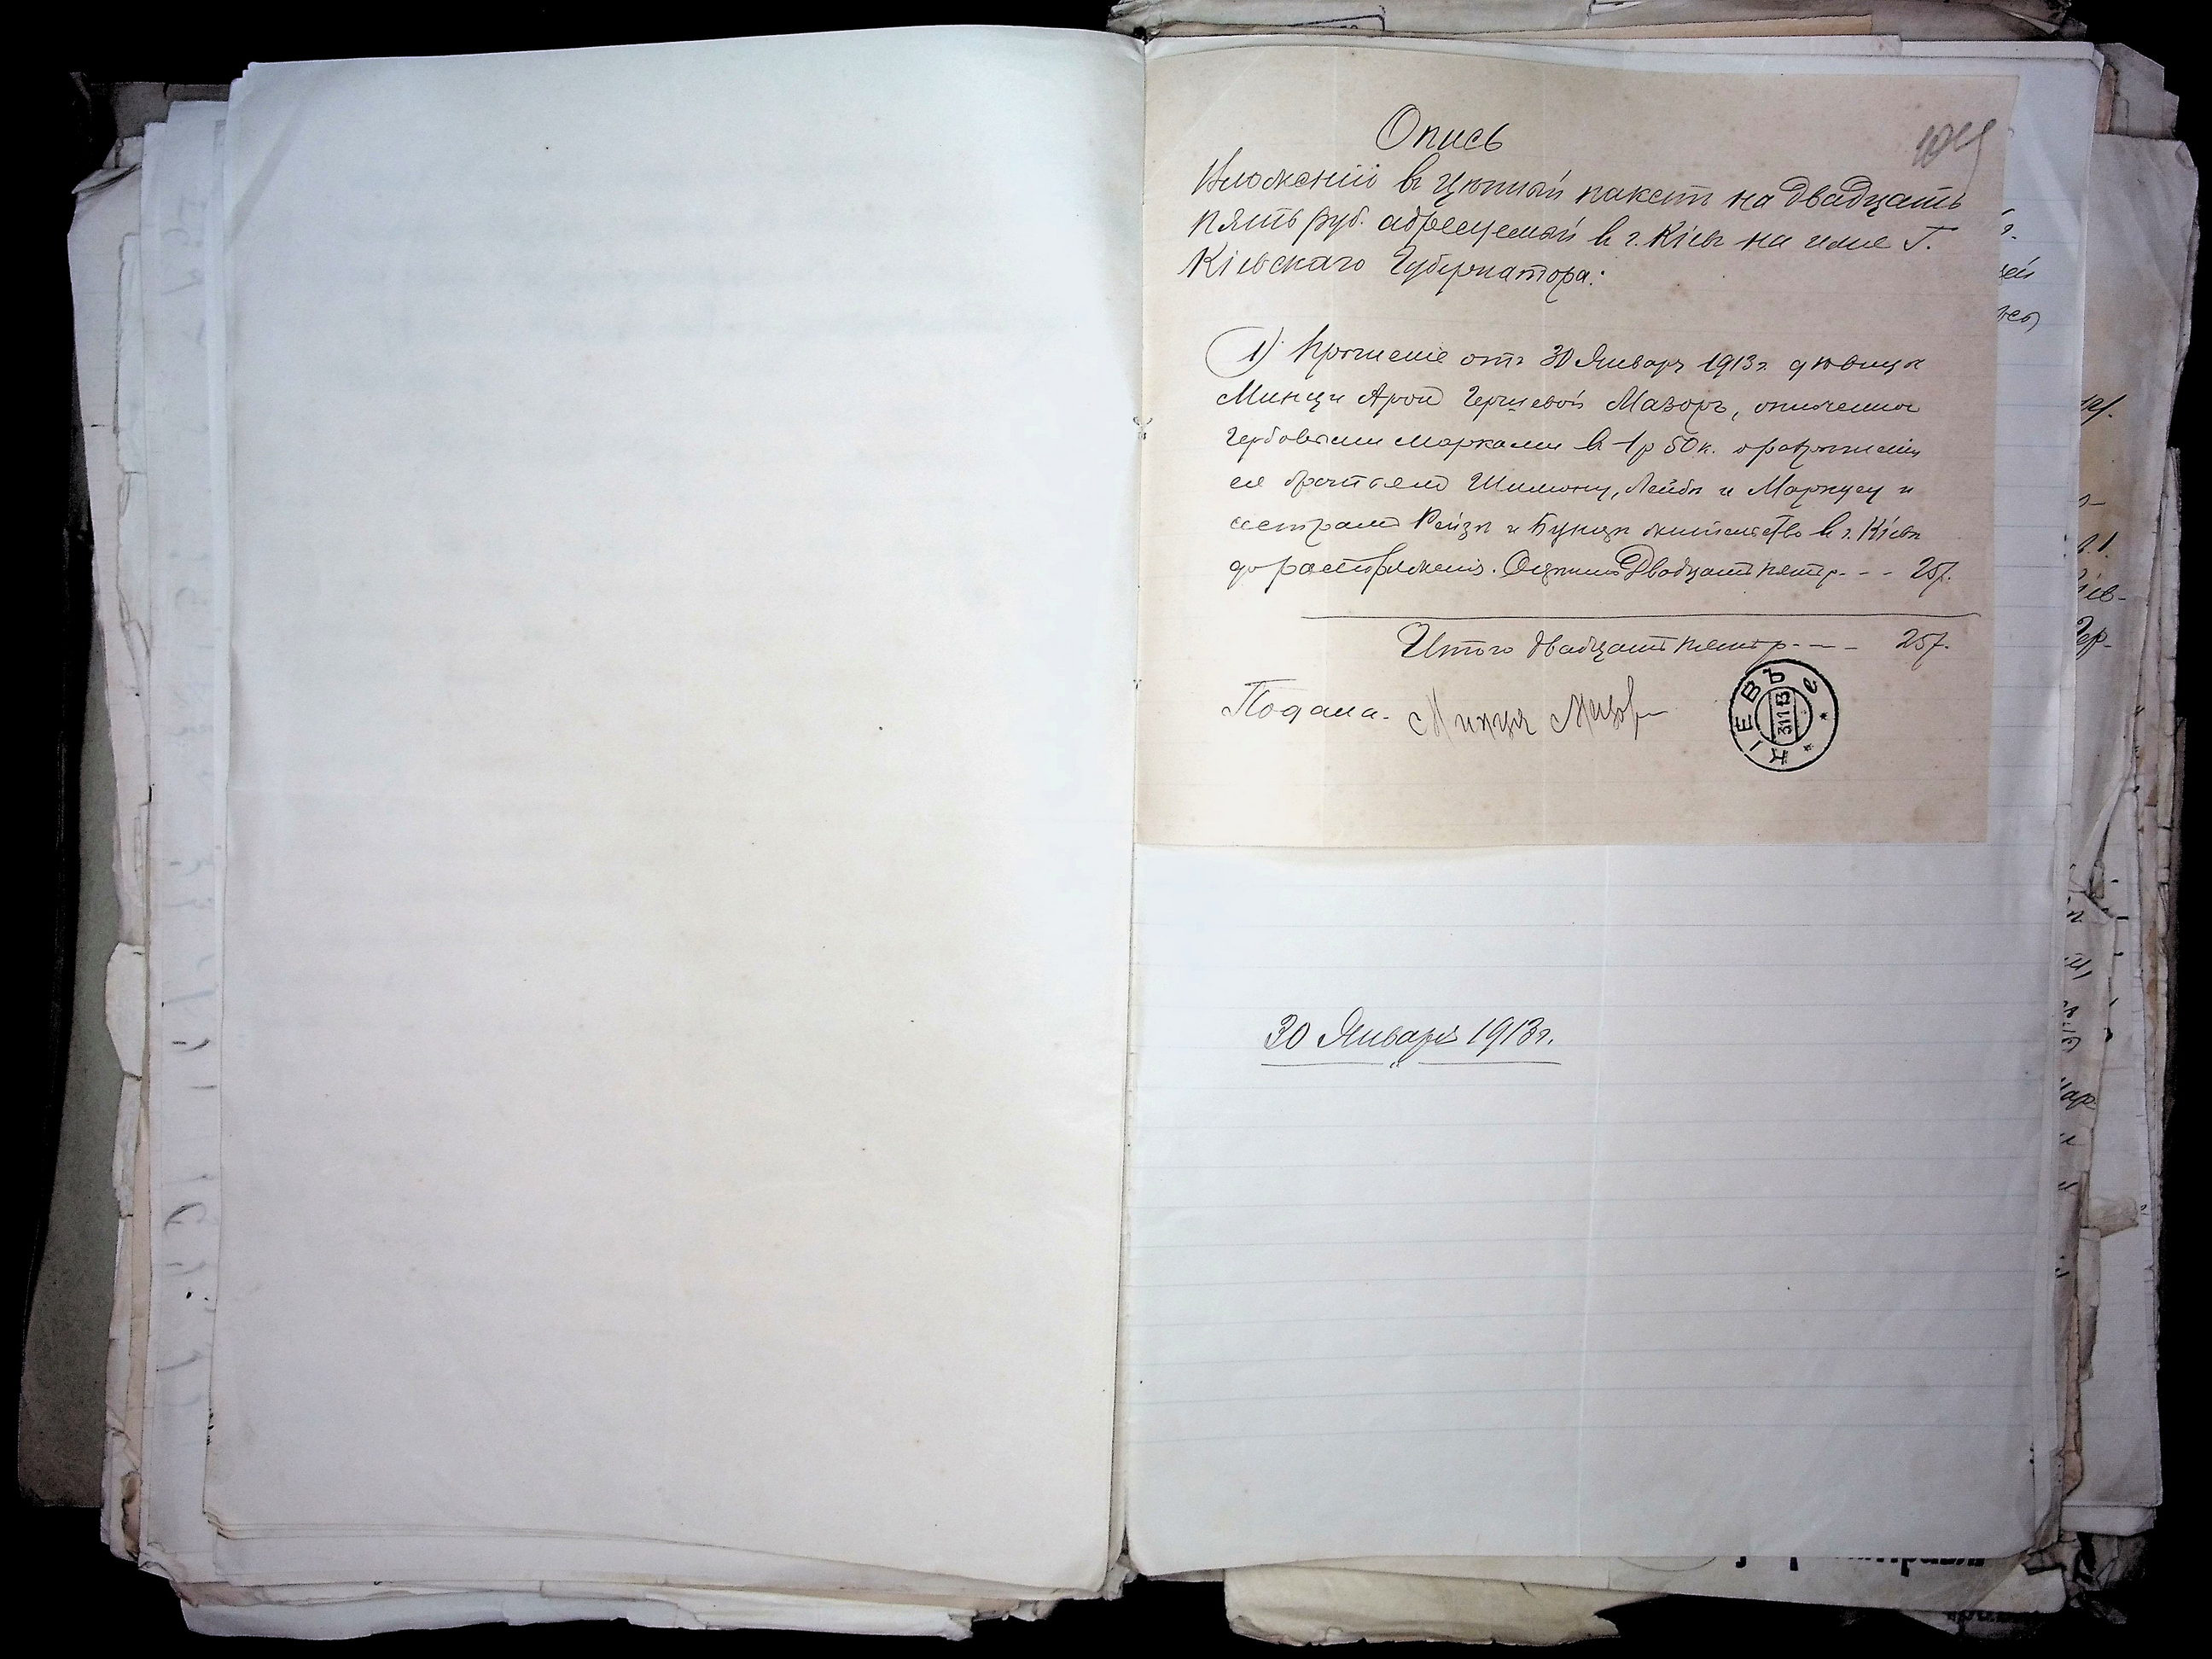 Опись
Вложенія въ цѣнный пакетъ на двадцать
пять руб. адресуемый въ г. Кіевъ на имя Г.
Кіевскаго Губернатора:
1) Прошеніе отъ 30 Января 1913 г. дѣвицы
Минци Арон Гершевой Мазоръ, оплаченное
гербовыми марками въ 1 р 50 к. о разрѣшеніи
ея братьямъ Шимону, Лейбѣ и Маркусу и
сестрамъ Рейзѣ и Бунцѣ жительство въ г. Кіевѣ
до распоряженія. Оцѣнено Двадцать пять р. - - - 25 р.
Итого двадцать пять р. - - - 25 р.
Подала. Минця Мазор
КІЕВЪ
31 1 13
е
30 Января 1913 г.